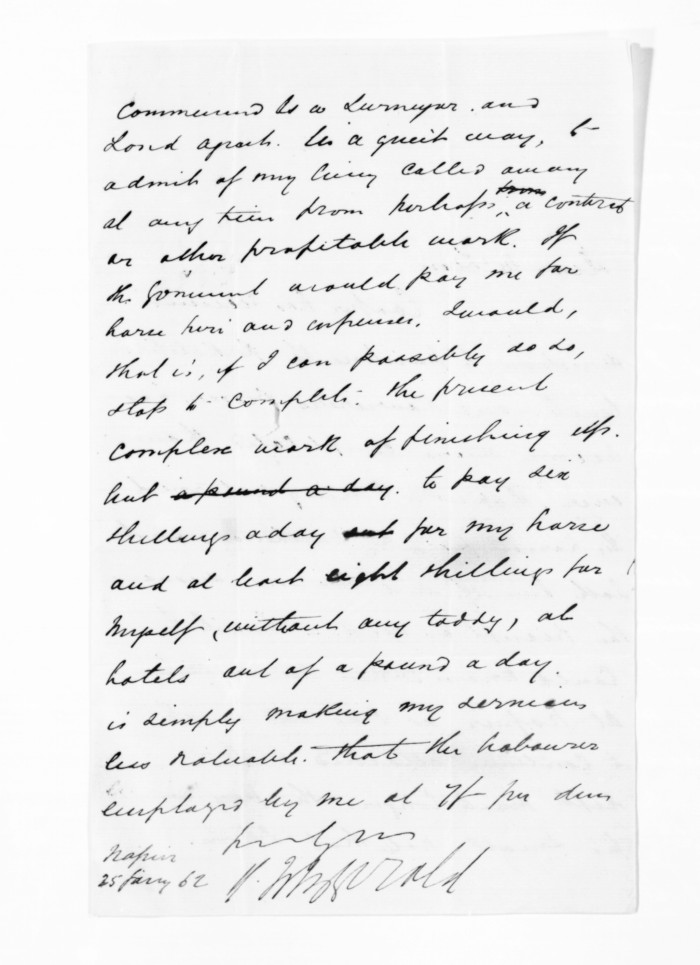 Commend to a Surveyor and
Lond apart. In a quiet way, to
admit of my being called away
at any time from perhaps a contract
or other profitable work. If
the Goverment would pay me for
horse hire and expenses, I would,
that is, if I can possibly do so,
stop to complete the present
complex work of finishing up.
but a pound a day. to pay six
shillings a day out for my horse
and at least eight shillings for
myself, without any toddy, at
hotels out of a pound a day
is simply making my services
less valuable than the labourer
employed by me at 7/ per diem
Napier
25 Jany 62 Fitzgerald